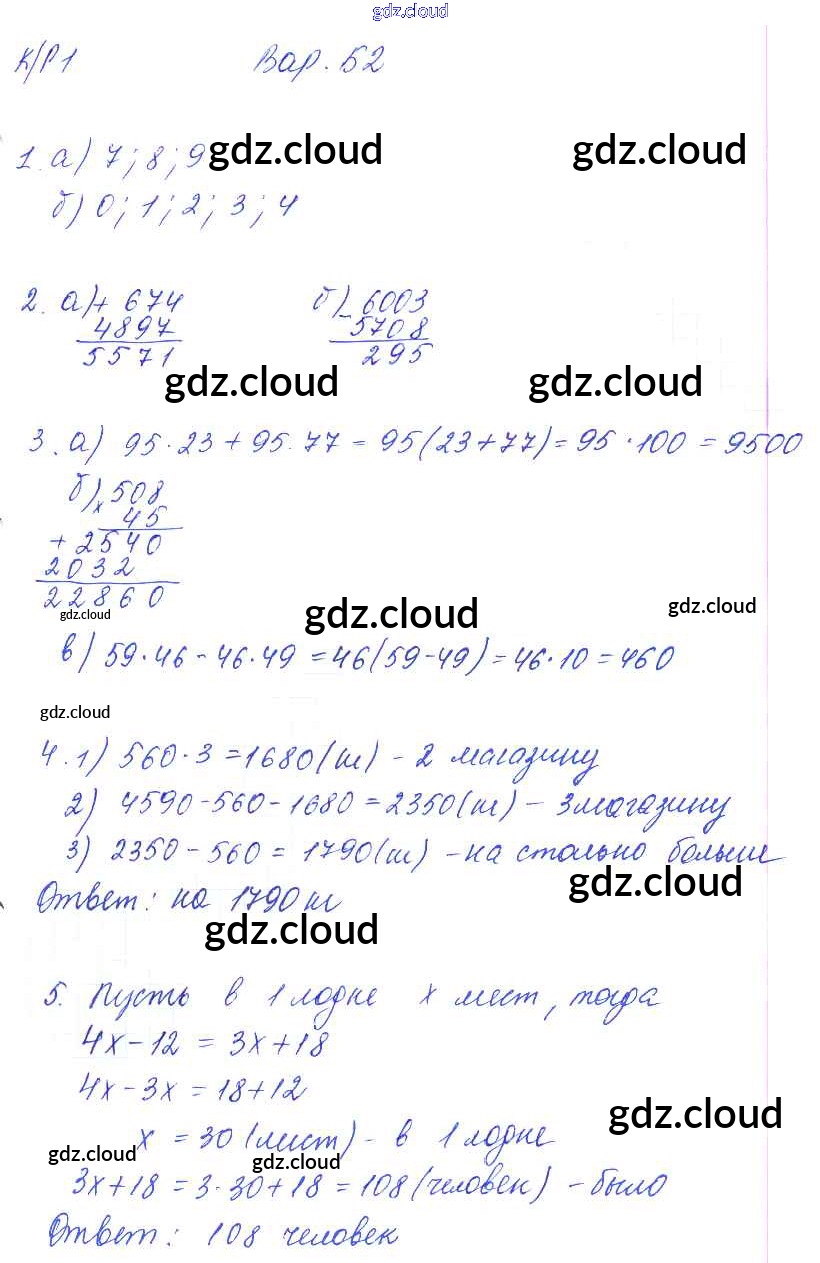 gdz.cloud
К/Р1 Вар. Б2
1. а) 7; 8; 9 gdz.cloud gdz.cloud
б) 0; 1; 2; 3; 4
2. а) + 674 б) - 6003
4897 5708
5571 295
gdz.cloud gdz.cloud
3. а) 95·23 + 95·77 = 95(23+77) = 95·100 = 9500
б) × 508
45
+ 2540
2032
22860
gdz.cloud gdz.cloud gdz.cloud
в) 59·46 - 46·49 = 46(59-49) = 46·10 = 460
gdz.cloud
4. 1) 560·3 = 1680(м) - 2 магазину
2) 4590-560-1680 = 2350(м) - 3 магазину
3) 2350-560 = 1790(м) - на столько больше
gdz.cloud
Ответ: на 1790 м
gdz.cloud
5. Пусть в 1 лодке x мест, тогда
4x-12 = 3x+18
4x-3x = 18+12
gdz.cloud
x = 30 (мест) - в 1 лодке
gdz.cloud gdz.cloud
3x+18 = 3·30+18 = 108 (человек) - было
Ответ: 108 человек